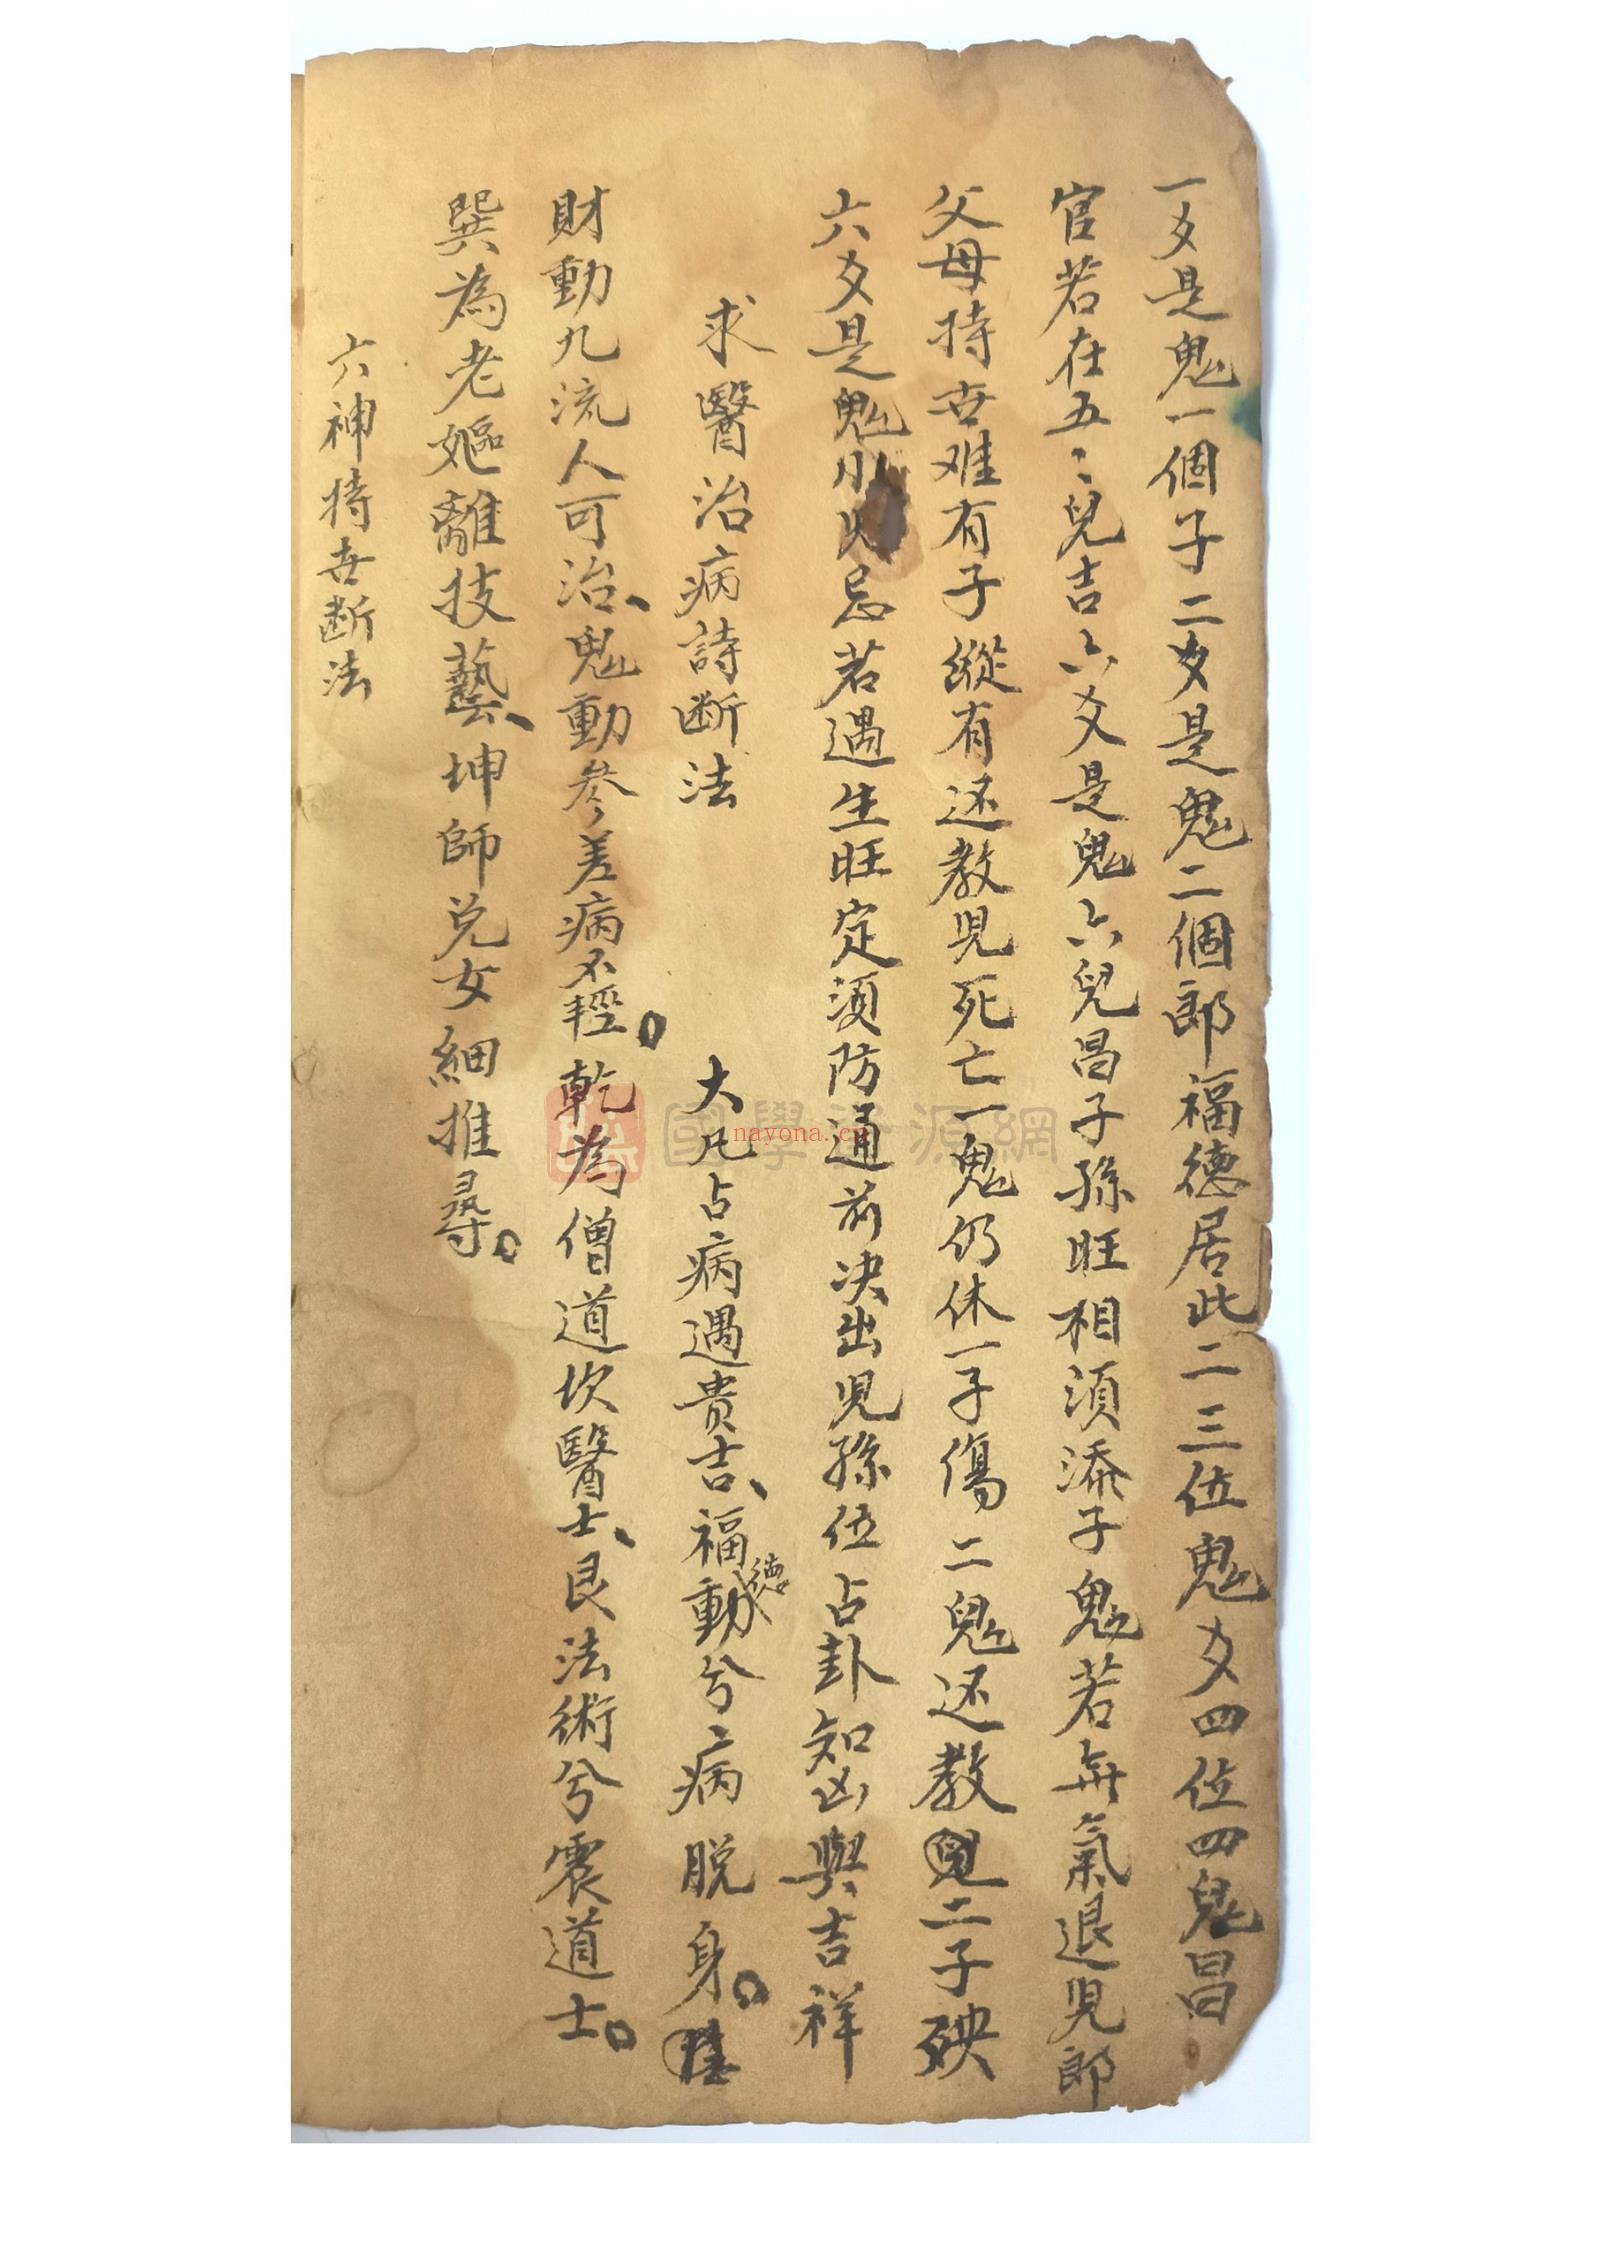 一爻是鬼一個子二爻是鬼二個郎福德居此二三位鬼爻四位四鬼昌
官若在五〻兒吉六爻是鬼六兒昌子孫旺相須添子鬼若無氣退兒郎
父母持世难有子縱有还教兒死亡一鬼仍休一子傷二鬼还教二子殃
六爻是鬼忌若遇生旺定須防通前决出児孫位占卦知凶與吉祥
求醫治病詩断法 大凡占病遇貴吉、福德動兮病脱身。
財動九流人可治、鬼動参差病不輕。乾為僧道坎醫士、艮法術兮震道士。
巽為老嫗離技藝、坤師兑女細推尋。
六神持世断法
國學資源網
nayona.cn